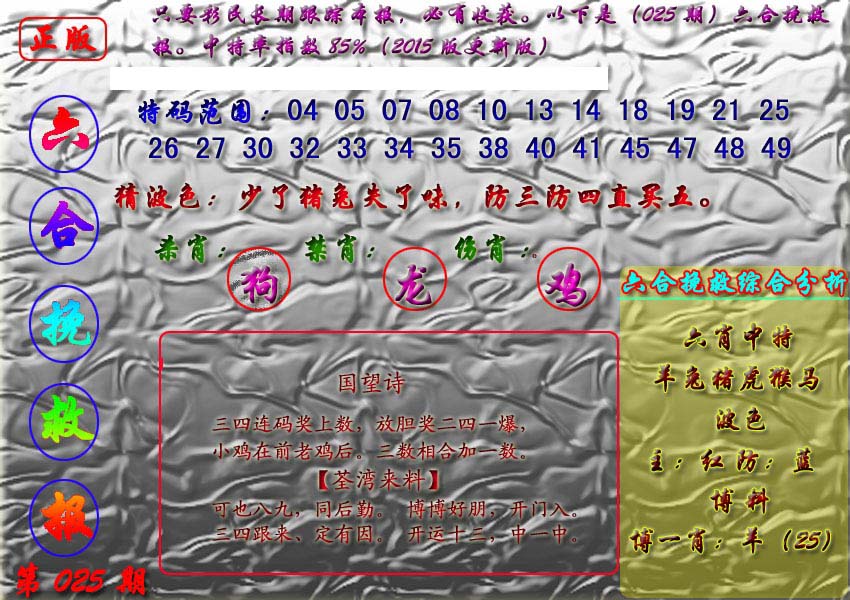 正版
只要彩民长期跟踪本报，必有收获。以下是（025期）六合挽救
报。中特率指数85%（2015版更新版）
六
合
挽
救
报
第025期
特码范围：04 05 07 08 10 13 14 18 19 21 25
26 27 30 32 33 34 35 38 40 41 45 47 48 49
猜波色：少了猪兔失了味，防三防四直买五。
杀肖：狗 禁肖：龙 伤肖：鸡
国望诗
三四连码奖上数，放胆奖二四一爆，
小鸡在前老鸡后。三数相合加一数。
【荃湾来料】
可也八九，同后勤。 博博好朋，开门入。
三四跟来、定有因。 开运十三，中一中。
六合挽救综合分析
六肖中特
羊兔猪虎猴马
波色
主：红防：蓝
博料
博一肖：羊（25）